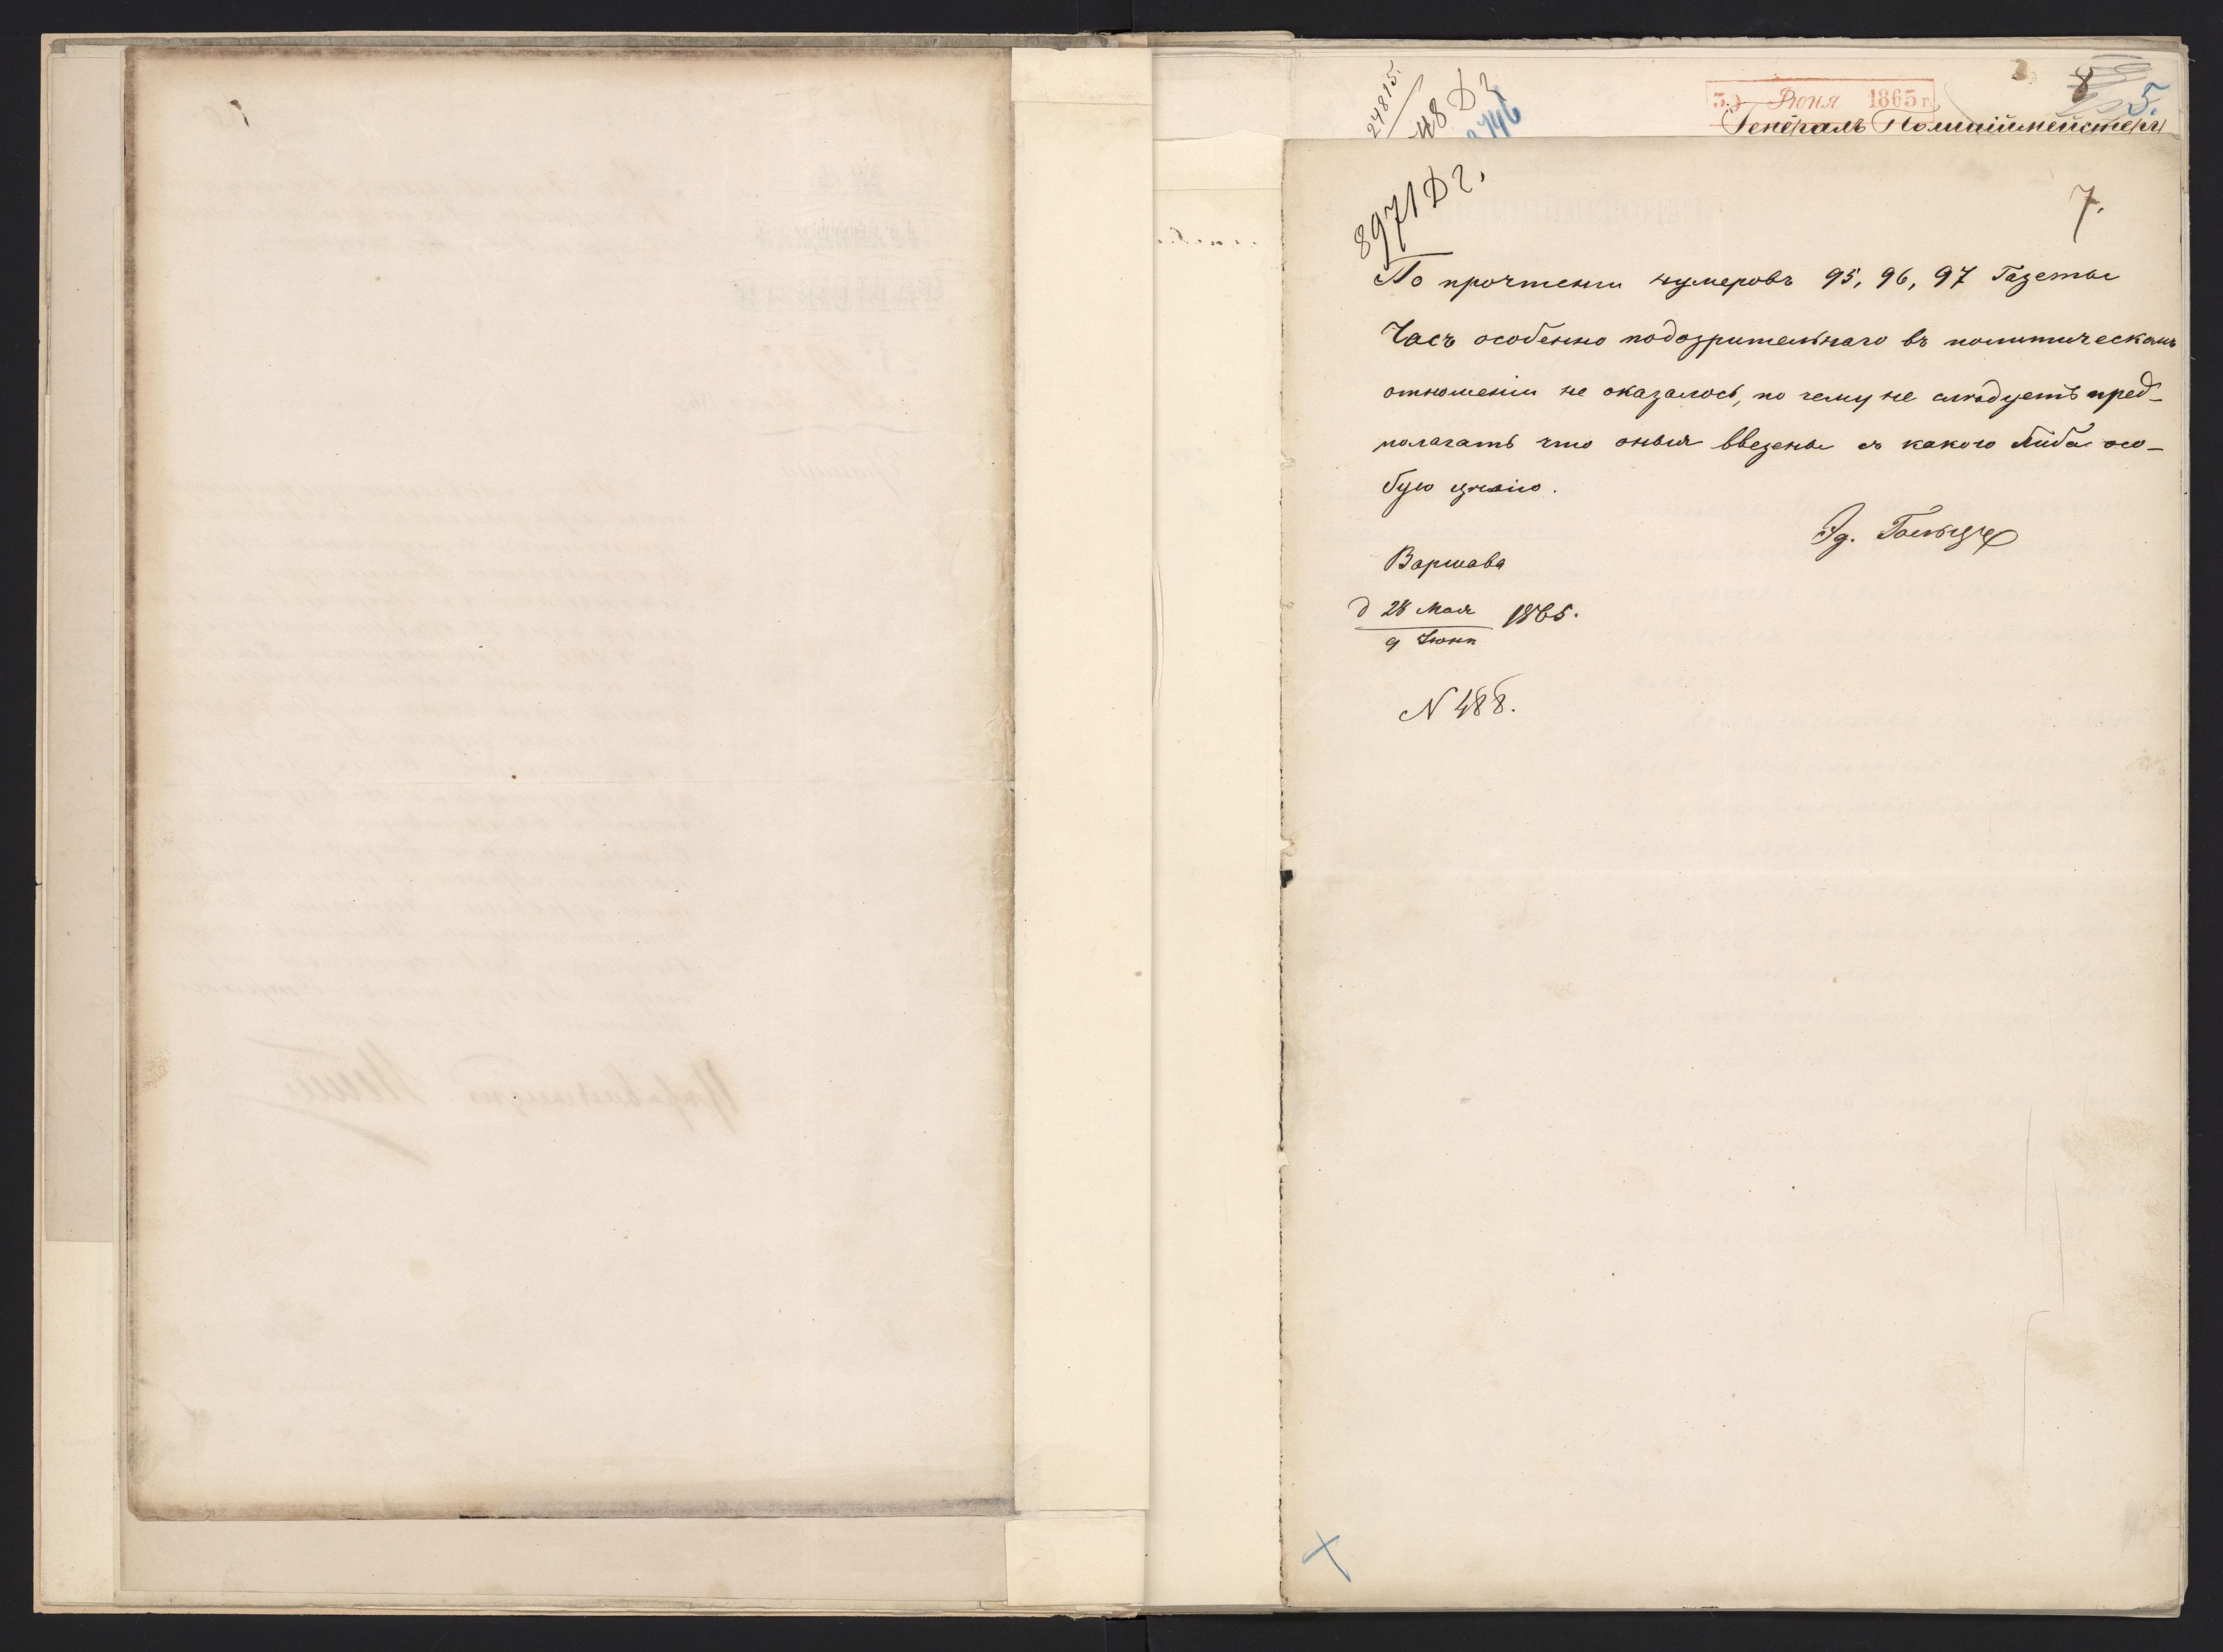 24815.
48 Дг
30 Июня 1865 г.
8
5.
Генералъ Полиціймейстеръ
8971 Дг.
7.
По прочтеніи нумеровъ 95, 96, 97 Газеты
Часъ особенно подозрительнаго въ политическомъ
отношеніи не оказалось, по чему не слѣдуетъ пред-
полагать что оныя ввезены съ какого либо осо-
бую цѣлію.
Варшава
д 28 Мая 1865.
9 Іюня
N 488.